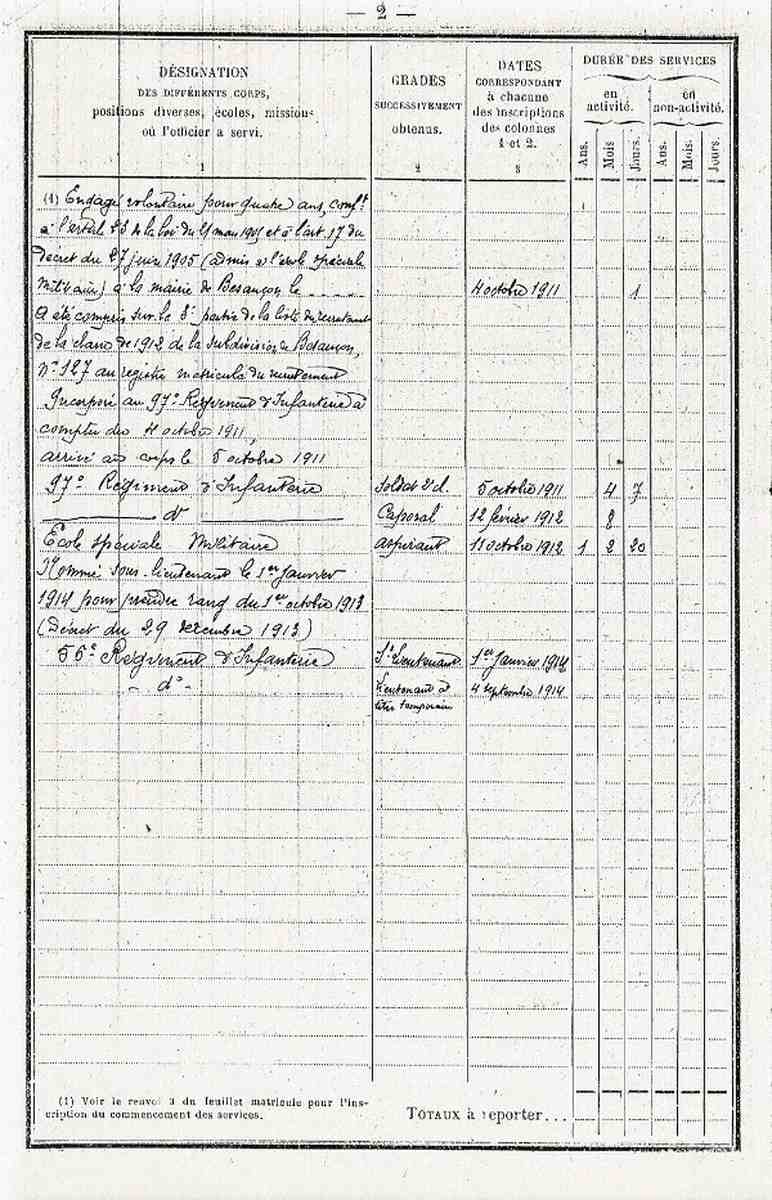 — 2 —
DÉSIGNATION
DES DIFFÉRENTS CORPS,
positions diverses, écoles, missions
où l'officier a servi.
1
GRADES
SUCCESSIVEMENT
obtenus.
2
DATES
CORRESPONDANT
à chacune
des inscriptions
des colonnes
1 et 2.
3
DURÉE DES SERVICES
en
activité.
en
non-activité.
Ans.
Mois
Jours.
Ans.
Mois.
Jours.
(1) Engagé volontaire pour quatre ans, conft
à l'article 23 de la loi du 21 mars 1905 et à l'art 17 du
Décret du 27 juin 1905 (admis à l'école spéciale
Militaire) à la mairie de Besançon le - - - - - 4 octobre 1911 1
A été compris sur la 3e partie de la liste de recrutement
de la classe de 1912 de la subdivision de Besançon,
No 127 au registre matricule du recrutement
Incorporé au 97e Régiment d'Infanterie à
compter du 4 octobre 1911,
arrivé au corps le 5 octobre 1911
97e Régiment d'Infanterie Soldat 2e cl. 5 octobre 1911 4 7
do Caporal 12 février 1912 8
Ecole spéciale Militaire aspirant 11 octobre 1912 1 2 20
Nommé sous-lieutenant le 1er Janvier
1914 pour prendre rang du 1er octobre 1913
(Décret du 29 décembre 1913)
56e Régiment d'Infanterie St Lieutenant 1er Janvier 1914
- do - Lieutenant à 4 septembre 1914
titre temporaire
(1) Voir le renvoi 3 du feuillet matricule pour l'ins-
cription du commencement des services.
TOTAUX à reporter...